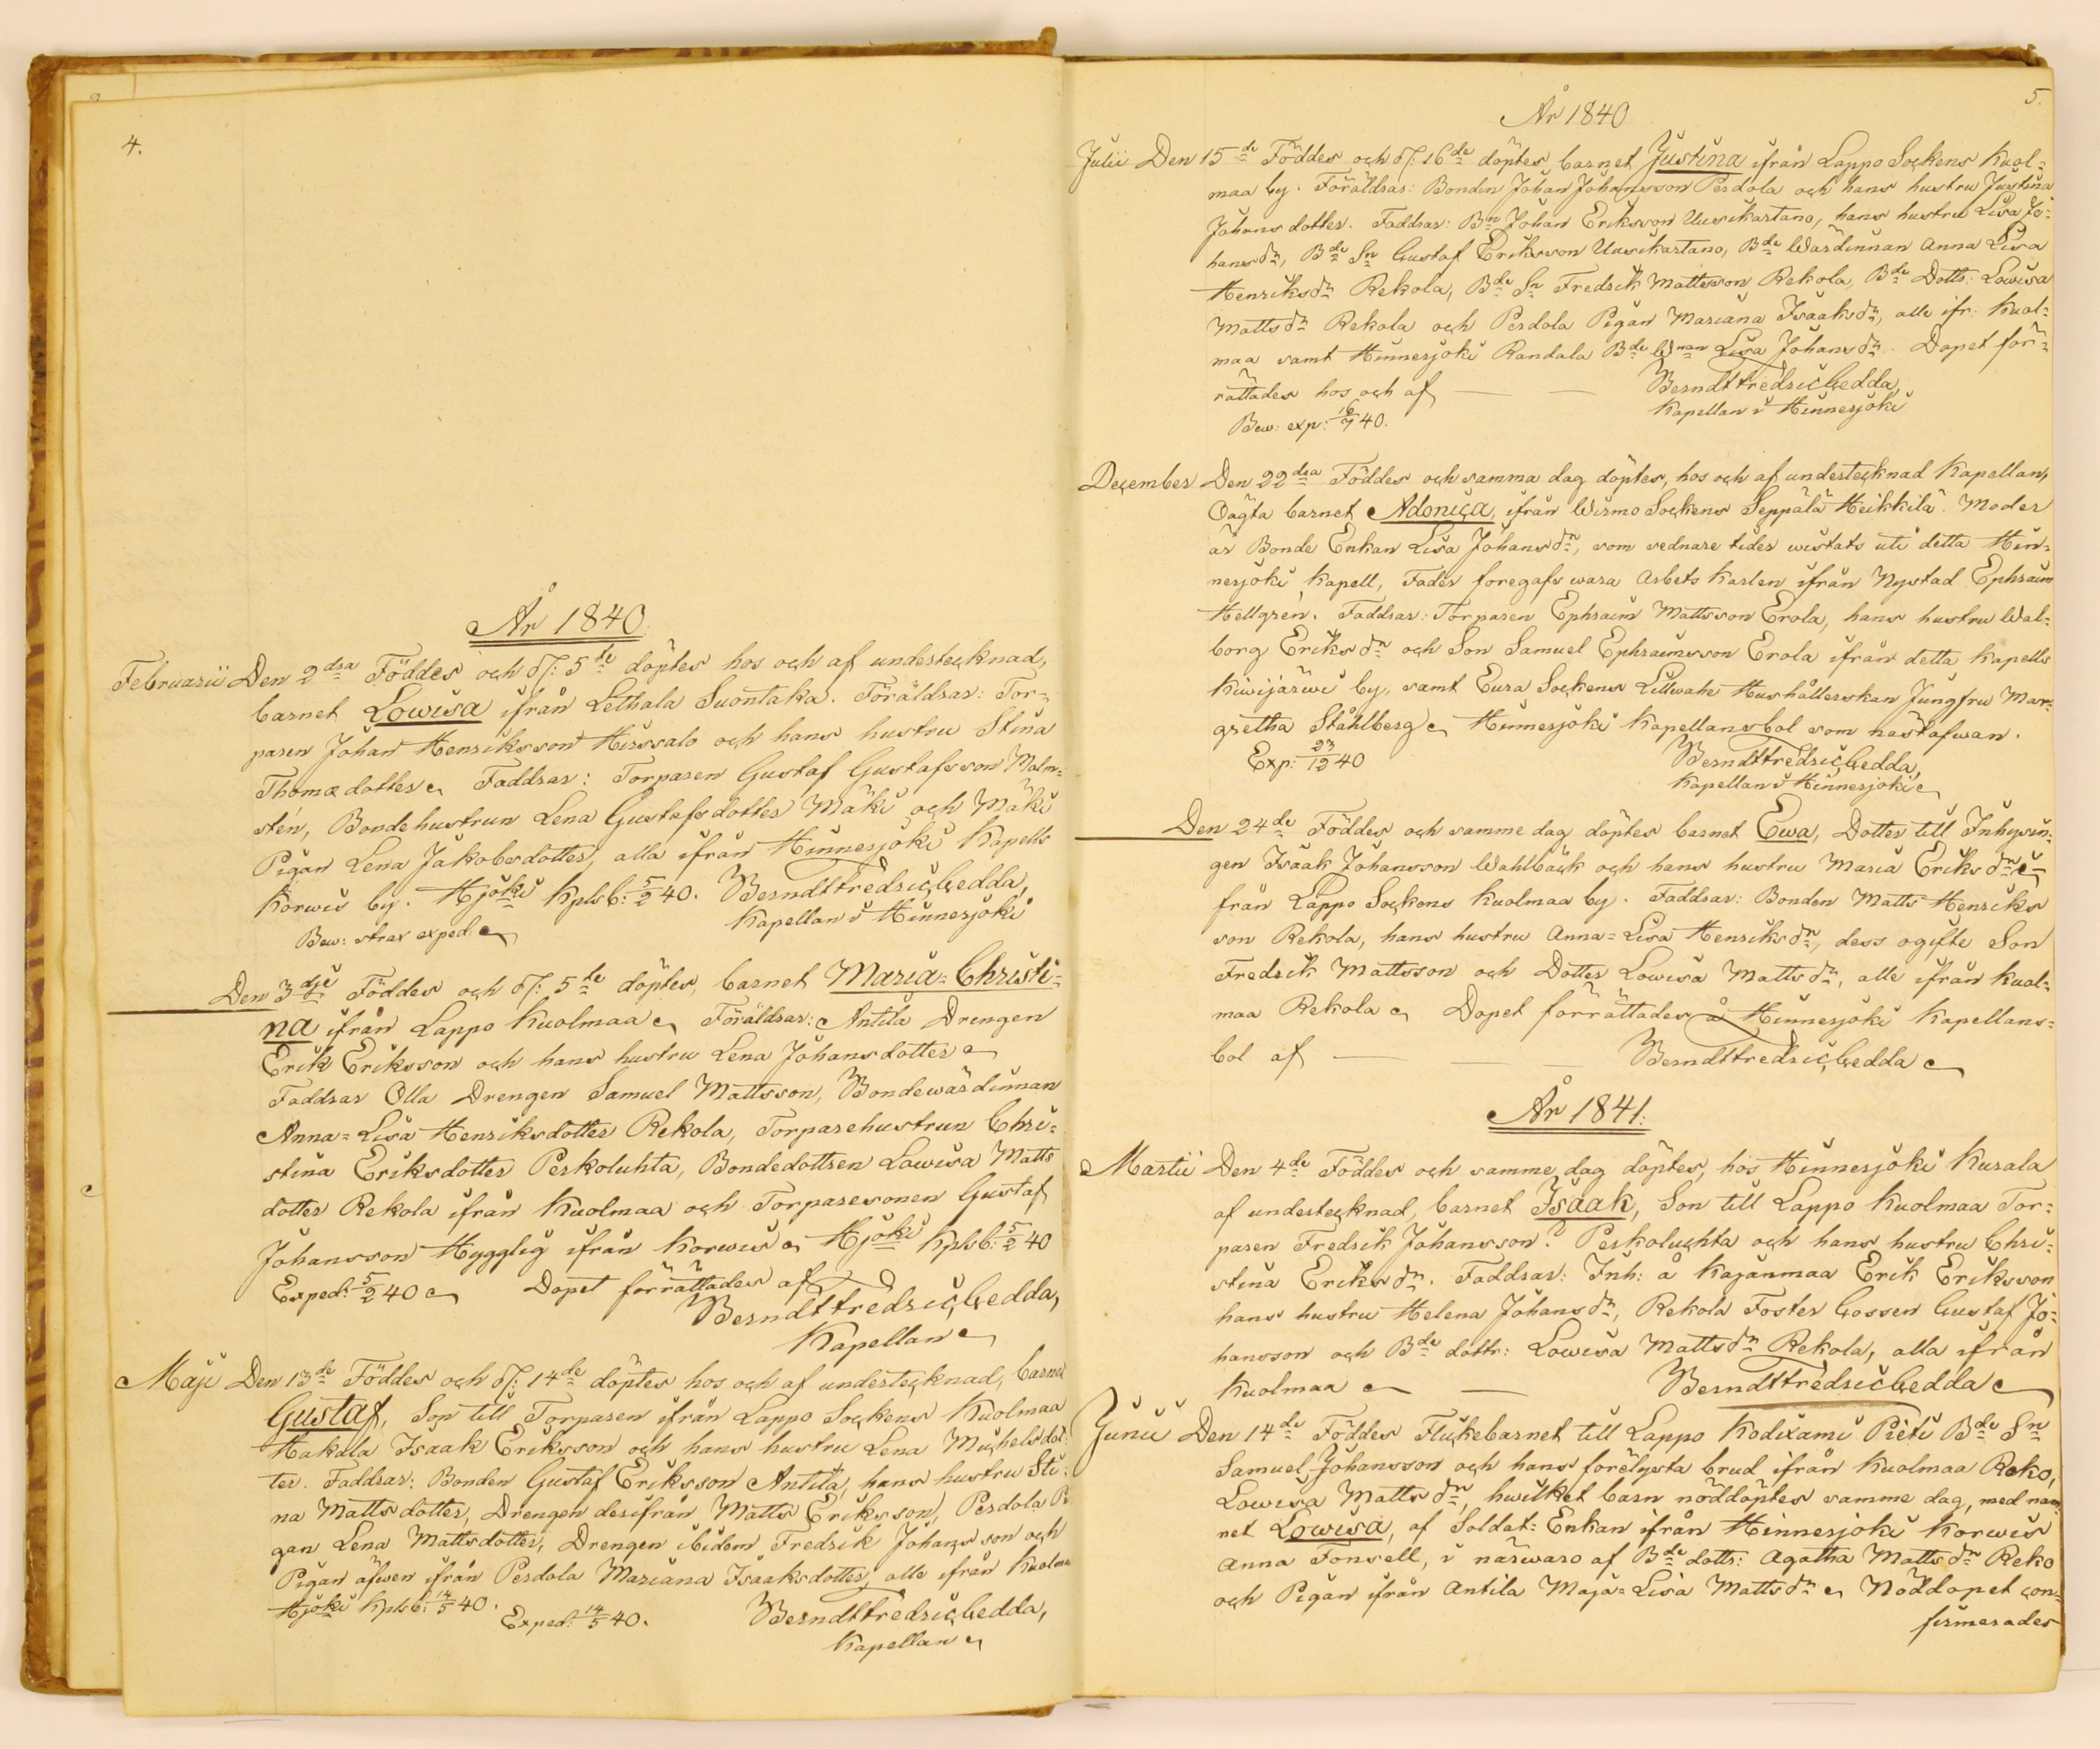 4.
År 1840.
Februarii Den 2dra Föddes och d: 5te döptes hos och af undertecknad,
barnet Lowisa ifrån Lethala Suontaka. Föräldrar: Tor-
paren Johan Henriksson Hirssalo och hans hustru Stina
Thomædotter. Faddrar: Torparen Gustaf Gustafsson Malm-
stén, Bondehustrun Lena Gustafsdotter Mäki och Mäki
Pigan Lena Jakobsdotter, alla ifrån Hinnerjoki Kapells
Korwis by. Hjoki Kplsb: 5/2 40. Berndt Fredric Gedda,
Bew: strax exped:
Kapellan i Hinnerjoki
Den 3dje Föddes och d: 5te döptes, barnet Maria-Christi-
na ifrån Lappo Kuolmaa. Föräldrar: Antila Drengen
Erik Eriksson och hans hustru Lena Johansdotter
Faddrar Olla Drengen Samuel Mattsson, Bondewärdinnan
Anna-Lisa Henriksdotter Rekola, Torparehustrun Chri-
stina Eriksdotter Perkoluhta, Bondedottren Lowisa Matts
dotter Rekola ifrån Kuolmaa och Torparesonen Gustaf
Johansson Hygglig ifrån Korwis. Hjoki Kplsb: 5/2 40
Exped: 5/2 40 Dopet förrättades af
Berndt Fredric Gedda,
Kapellan
Maji Den 13de Föddes och d: 14de döptes hos och af undertecknad, barnet
Gustaf, Son till Torparen ifrån Lappo Sockens Kuolmaa
Hakala Isaak Eriksson och hans hustru Lena Michelsdot-
ter. Faddrar: Bonden Gustaf Eriksson Antila, hans hustru Sti-
na Mattsdotter, Drengen derifrån Matts Eriksson, Perdola Pi
gan Lena Mattsdotter, Drengen ibidem Fredrik Johansson och
Pigan äfwen ifrån Perdola Mariana Isaaksdotter, alle ifrån Kuolma
Hjoki Kplsb: 14/5 40.
Exped: 14/5 40.
Berndt Fredric Gedda,
Kapellan
5.
År 1840
Julii Den 15de Föddes och d: 16de döptes barnet Justina ifrån Lappo Sockens Kuol-
maa by. Föräldrar: Bonden Johan Johansson Perdola och hans hustru Justina
Johansdotter. Faddrar: Bn Johan Eriksson Uusikartano, hans hustru Lisa Jo-
hansdr, Bde Sn Gustaf Eriksson Uusikartano, Bde Wärdinnan Anna Lisa
Henriksdr Rekola, Bde Sn Fredrik Mattsson Rekola, Bde Dottr: Lowisa
Mattsdr Rekola och Perdola Pigan Mariana Isaaksdr, alle ifr: Kuol-
maa samt Hinnerjoki Randala Bde Wnan Lisa Johansdr. Dopet för-
rättades hos och af — — Berndt Fredric Gedda,
Bew: exp: 16/7 40.
Kapellan i Hinnerjoki
December Den 22dra Föddes och samma dag döptes, hos och af undertecknad Kapellan,
Oägta barnet Adonica, ifrån Wirmo Sockens Seppälä Heikkilä. Moder
är Bonde Enkan Lisa Johansdr, som sednare tider wistats uti detta Hin-
nerjoki Kapell, Fader foregafs wara Arbets Karlen ifrån Nystad Ephraim
Hellgrén. Faddrar: Torparen Ephraim Mattsson Erola, hans hustru Wal-
borg Eriksdr och Son Samuel Ephraimsson Erola ifrån detta Kapells
Kiwijärwi by, samt Eura Sockens Lillwahe Hushållerskan Jungfru Mar-
gretha Ståhlberg. Hinnerjoki Kapellansbol som nästofwan.
Exp: 23/12 40
Berndt Fredric Gedda,
Kapellan i Hinnerjoki
Den 24de Föddes och samme dag döptes barnet Ewa, Dotter till Inhysin-
gen Isaak Johansson Wahlbäck och hans hustru Maria Eriksdr i-
från Lappo Sockens Kuolmaa by. Faddrar: Bonden Matts Henriks
son Rekola, hans hustru Anna-Lisa Henriksdr, dess ogifte Son
Fredrik Mattsson och Dotter Lowisa Mattsdr, alle ifrån Kuol-
maa Rekola. Dopet förrättades å Hinnerjoki Kapellans-
bol af — — — Berndt Fredric Gedda
År 1841.
Martii Den 4de Föddes och samme dag döptes, hos Hinnerjoki Kurala
af undertecknad, barnet Isaak, Son till Lappo Kuolmaa Tor-
paren Fredrik Johansson Perkoluchta och hans hustru Chri-
stina Eriksdr. Faddrar: Inh: å Kajanmaa Erik Eriksson
hans hustru Helena Johansdr, Rekola Foster Gossen Gustaf Jo-
hansson och Bde dottr: Lowisa Mattsdr Rekola, alla ifrån
Kuolmaa — Berndt Fredric Gedda
Junii Den 14de Föddes Flickebarnet till Lappo Kodixami Pieti Bde Sn
Samuel Johansson och hans förelysta brud ifrån Kuolmaa Reko,
Lowisa Mattsdr, hwilket barn nöddöptes samme dag, med nam
net Lowisa, af Soldat-Enkan ifrån Hinnerjoki Korwis
Anna Fonsell, i närwaro af Bde dottr: Agatha Mattsdr Reko
och Pigan ifrån Antila Maja-Lisa Mattsdr. Nöddopet con-
firmerades